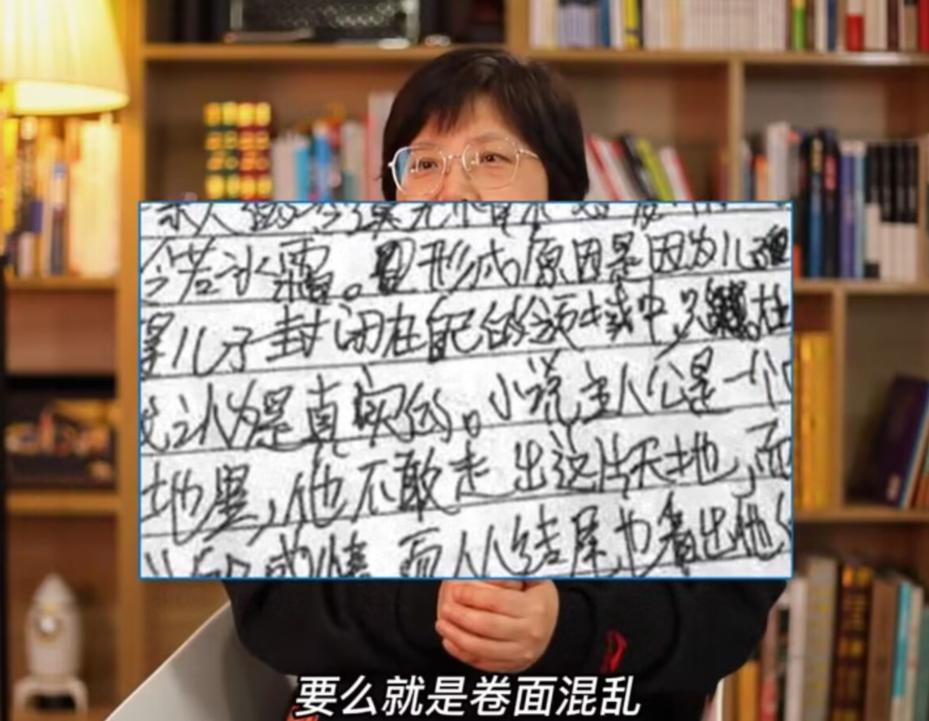 冷若冰霜。因形成原因是因为儿
得儿子封闭在自己的领域中,只 在
我认为是真实的。小说主人公是一个
地里,他不敢走出这片天地,而
感情 而从结尾也看出他
要么就是卷面混乱